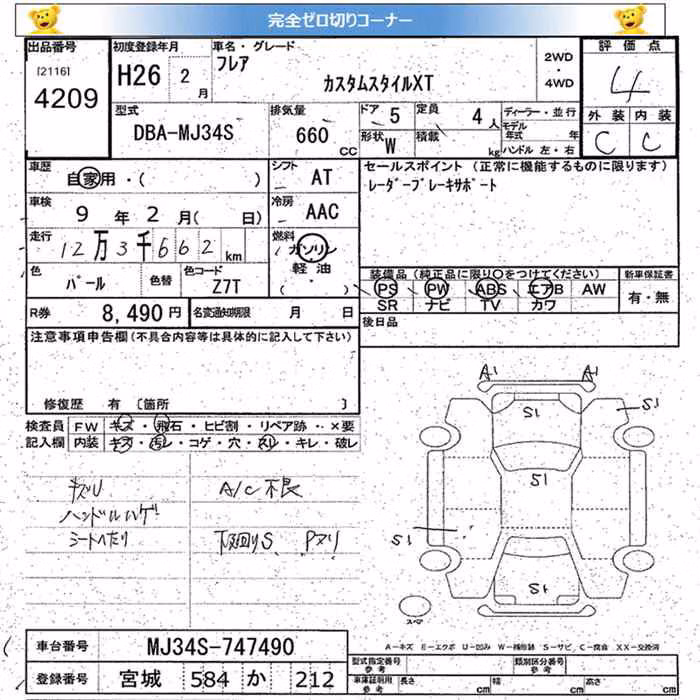 完全ゼロ切りコーナー
出品番号
[2116]
4209
初度登録年月
H26 2月
車名・グレード
フレア
カスタムスタイルXT
2WD
・
4WD
評価点
4
外装 内装
C C
型式
DBA-MJ34S
排気量
660 CC
ドア 5
定員 4人
形状 W
積載 kg
ディーラー・並行
モデル年式 年
ハンドル 左・右
車歴
自家用・( )
シフト AT
車検
9年2月( 日)
冷房 AAC
走行
12万3千662km
燃料
ガソリン
軽油
( ・ )
色 パール
色替
色コード Z7T
R券 8,490円
名変通知期限 月 日
セールスポイント (正常に機能するものに限ります)
レーダーブレーキサポート
装備品(純正品に限り○をつけてください)
PS PW ABS エアB AW
SR ナビ TV カワ
新車保証書
有・無
後日品
注意事項申告欄(不具合内容等は具体的に記入して下さい)
修復歴 有 [箇所 ]
検査員記入欄
FW キズ・飛石・ヒビ割・リペア跡・×要
内装 キズ・汚レ・コゲ・穴・スリ・キレ・破レ
キズU
ハンドルハゲ
シートへたり
A/C不良
下廻りS Pヌリ
A1 A1
S1 S1
S1
S1
S1
スペア
A-キズ E-エクボ U-凹み W-補修跡 S-サビ C-腐食 XX-交換済
車台番号 MJ34S-747490
登録番号 宮城 584 か 212
型式指定番号
参考
類別区分番号
参考
車庫証明用
参考
長さ cm 幅 cm 高さ cm